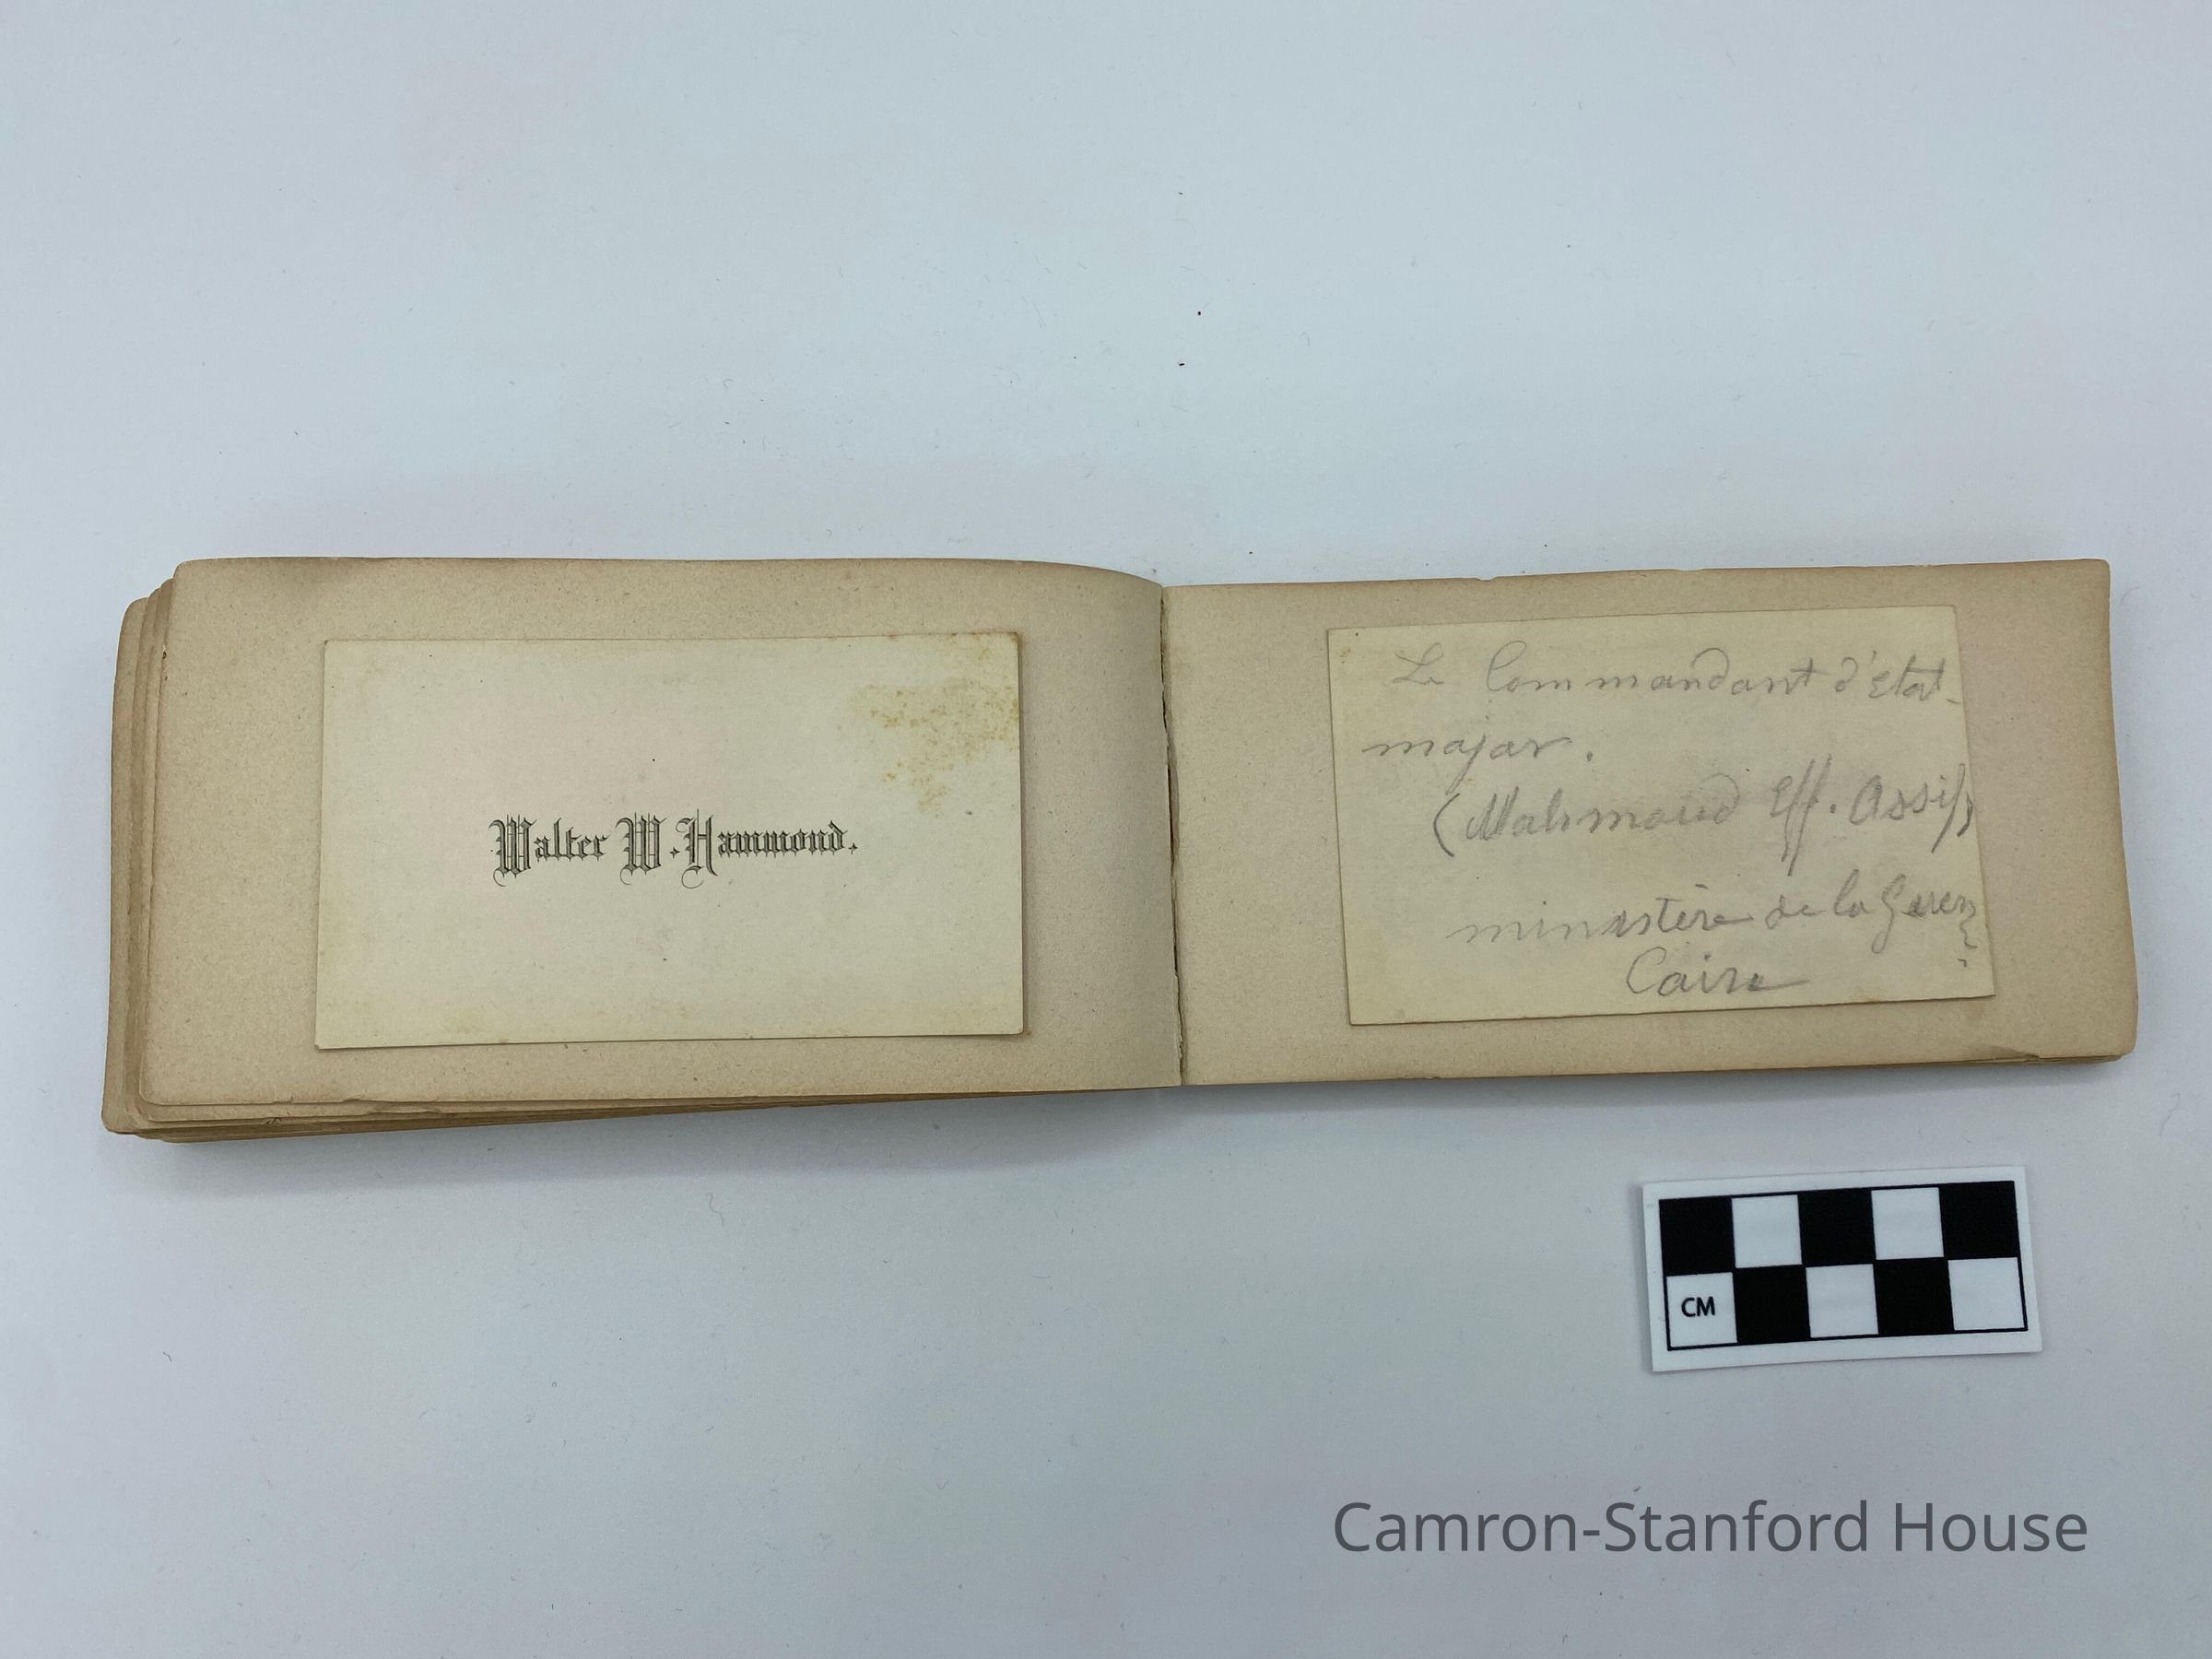 Walter W. Hammond.
Le Commandant d'état-
major.
(Mahmoud Eff. Assif)
ministère de la Guerre
Caire
CM
Camron-Stanford House